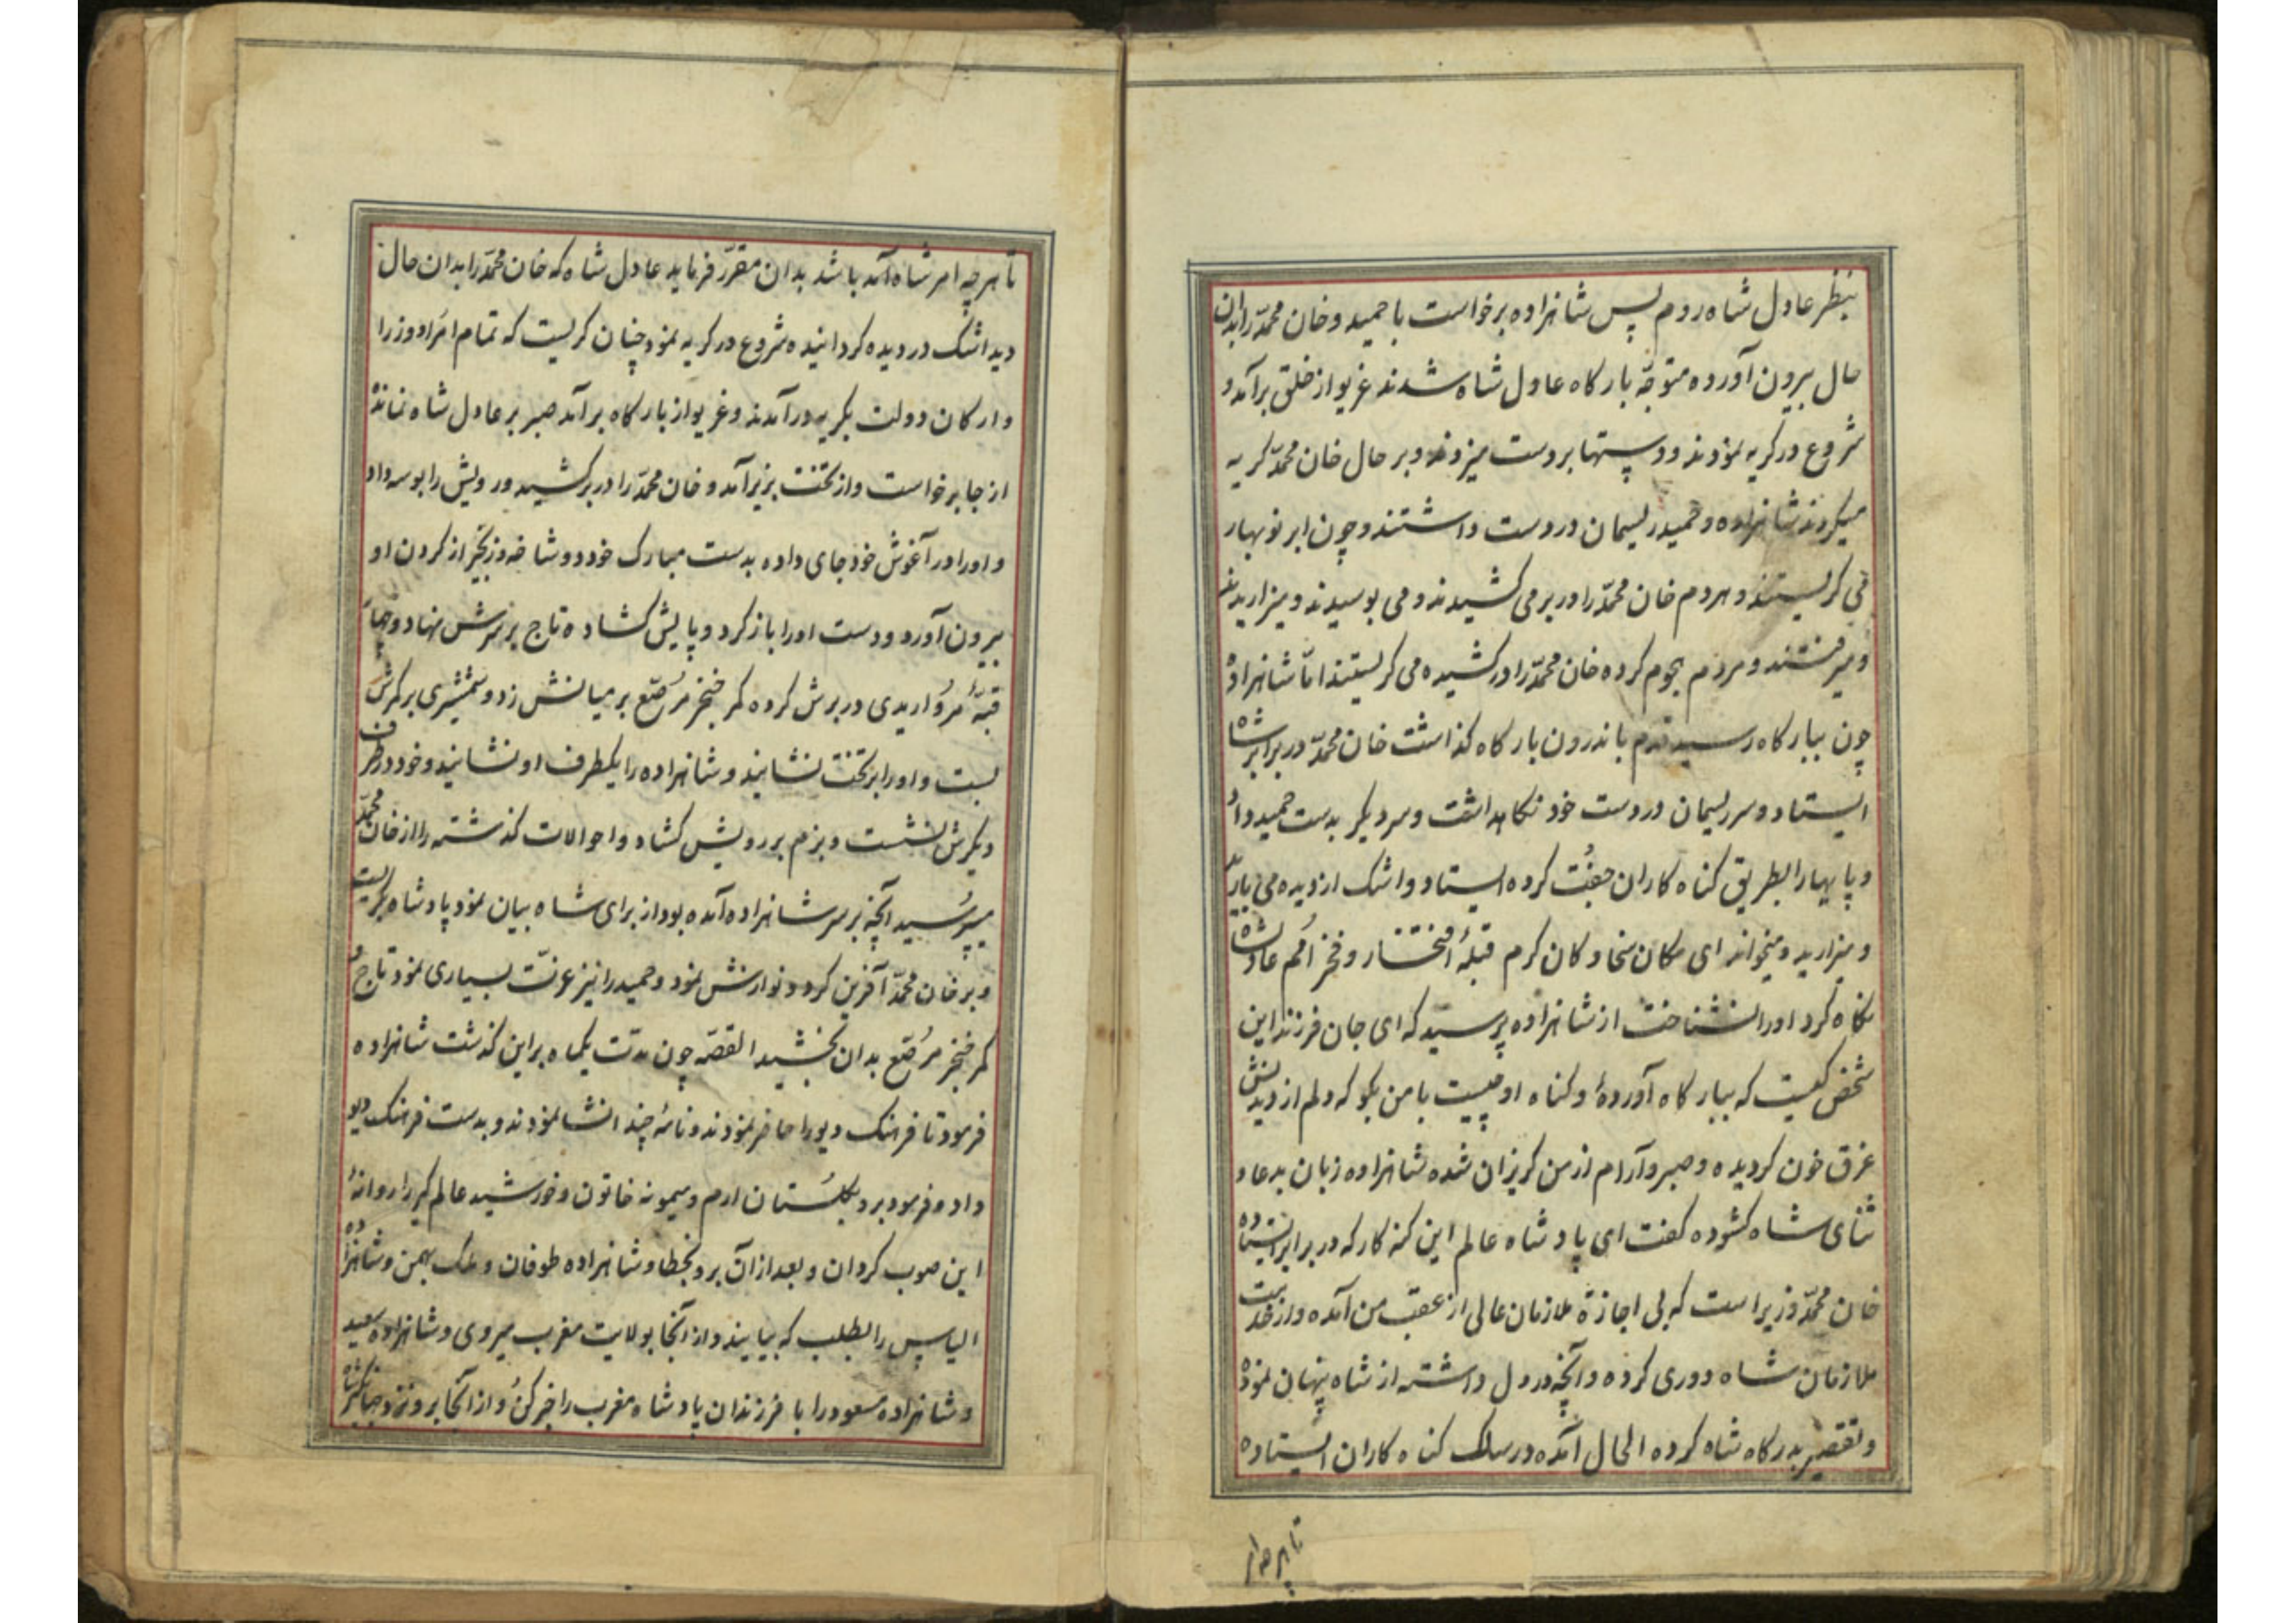 بنظر عادل شاه روم پس شاهزاده برخواست با حمید و خان محمّد را بدان
حال بیرون آورده متوجّه بارکاه عادل شاه شدند غریو از خلق برآمد و
شروع در کریه نمودند و دستها بر دست میزدند و بر حال خان محمّد کریه
میکردند شاهزاده و حمید ریسمان در دست داشتند و چون ابر نوبهار
می کریستند و هر دم خان محمّد را در بر می کشیدند و می بوسیدند و میزاریدند
و میرفتند و مردم هجوم کرده خان محمّد را در کشیده می کریستند امّا شاهزاده
چون ببارکاه رسید قدم باندرون بارکاه کذاشت خان محمّد در برابر شاه
ایستاد و سر ریسمان در دست خود نکاهداشت و سر دیکر بدست حمید داد
و پایها را بطریق کناه کاران جفت کرده ایستاد و اشک از دیده می بارید
و میزارید و میخواند ای مکان سخا و کان کرم قبلهٔ افتخار و فخر امم عادلشاه
نکاه کرد او را نشناخت از شاهزاده پرسید که ای جان فرزند این
شخص کیست که ببارکاه آوردهٔ و کناه او چیست با من بکو که دلم از دیدنش
غرق خون کردیده و صبر و آرام از من کریزان شده شاهزاده زبان بدعا و
ثنای شاه کشوده کفت ای پادشاه عالم این کنه کار که در برابر ایستاده
خان محمّد وزیر است که بی اجازهٔ ملازمان عالی از عقب من آمده و از خدمت
ملازمان شاه دوری کرده و آنچه در دل داشته از شاه پنهان نموده
و تقصیر بدرکاه شاه کرده الحال آمده در سلک کناه کاران ایستاده
تا هرچه امر
تا هرچه امر شاه آمد باشد بدان مقرّر فرماید عادل شاه که خان محمّد را بدان حال
دید اشک در دیده کردانیده شروع در کریه نمود چنان کریست که تمام امرا و وزرا
و ارکان دولت بکریه درآمدند و غریو از بارکاه برآمد صبر بر عادل شاه نمانده
از جا برخواست و از تخت بزیر آمد و خان محمّد را در بر کشید و رویش را بوسه داد
و او را در آغوش خود جای داده بدست مبارک خود دو شاخه و زنجیر از کردن او
بیرون آورد و دست او را باز کرد و پایش کشاده تاج بر سرش نهاد و چهار
قبّهٔ مرواریدی در برش کرده کمر خنجر مرصّع بر میانش زد و شمشیری بر کمرش
بست و او را بر تخت نشانید و شاهزاده را یکطرف او نشانید و خود در طرف
دیکرش نشست و بزم بر رویش کشاد و احوالات کذشته را از خان محمّد
میپرسید آنچه بر سر شاهزاده آمده بود از برای شاه بیان نمود پادشاه بکریست
و بر خان محمّد آفرین کرد و نوازش نمود و حمید را نیز عزّت بسیاری نمود تاج و
کمر خنجر مرصّع بدان بخشید القصّه چون مدّت یکماه بر این کذشت شاهزاده
فرمود تا فرهنک دیو را حاضر نمودند و نامهٔ چند انشا نمودند و بدست فرهنک دیو
داد و فرمود برو بکلستان ارم و میمونه خاتون و خورشید عالم کیر را روانهٔ
این صوب کردان و بعد از آن برو بخطا و شاهزاده طوفان و ملک بهمن و شاهزاده
الیاس را بطلب که بیایند و از آنجا بولایت مغرب میروی و شاهزاده سعید
و شاهزاده مسعود را با فرزندان پادشاه مغرب را خبر کن و از آنجا برو نزد جهانکیر شاه